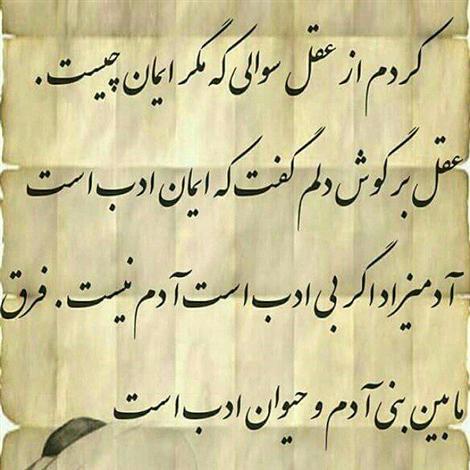 کردم از عقل سوالی که مگر ایمان چیست .
عقل بر گوش دلم گفت که ایمان ادب است
آدمیزاد اگر بی ادب است آدم نیست . فرق
مابین بنی آدم و حیوان ادب است